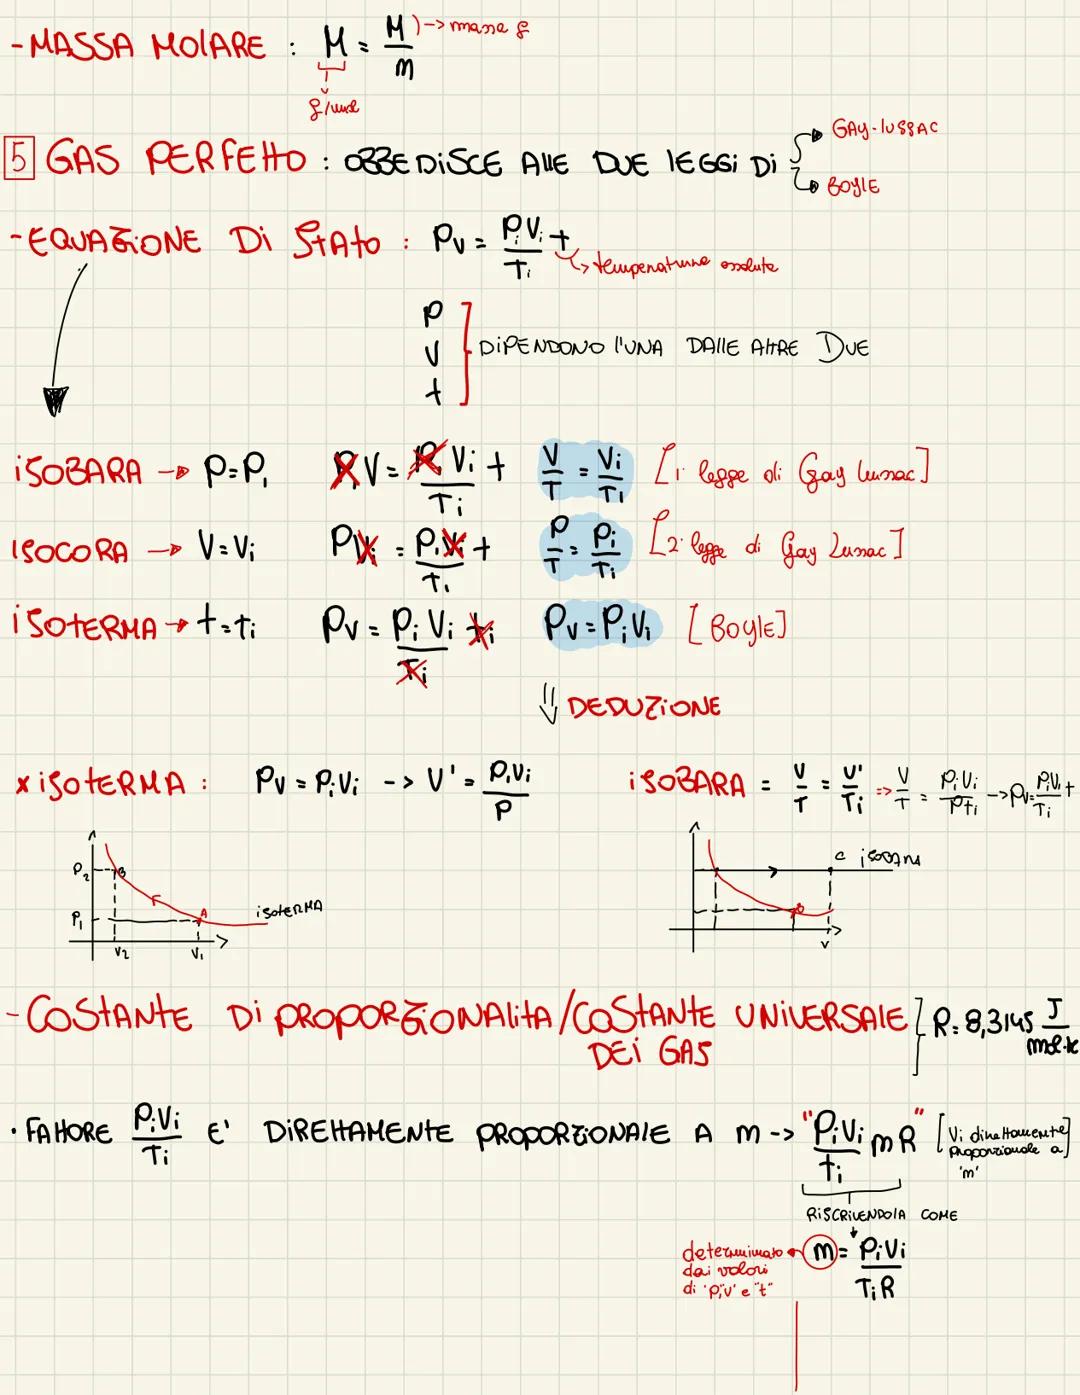 - MASSA MOLARE : M = M/m → massa g
g/mol
5 GAS PERFETTO : OBBEDISCE ALLE DUE LEGGI DI
GAY-LUSSAC
BOYLE
- EQUAZIONE DI STATO : Pv = PiVi/Ti t
↳ temperatura assoluta
P
V
t
DIPENDONO l'UNA DALLE ALTRE DUE
ISOBARA → P=Pi PiV = PiVi/Ti t V/T = Vi/Ti [1ª legge di Gay Lussac]
ISOCORA → V=Vi PVi = PiVi/Ti t P/T = Pi/Ti [2ª legge di Gay Lussac]
ISOTERMA → t=ti Pv = PiVi/Ti ti Pv=PiVi [BOYlE]
⇓ DEDUZIONE
x ISOTERMA : Pv = PiVi --> V' = PiVi/P
ISOBARA = V/T = V'/Ti => V/T = PiVi/Pti -> Pv = PiVi/Ti t
P2 B
P1 A
ISOTERMA
V2 V1
C ISOBARA
B
V
- COSTANTE DI PROPORZIONALITA/COSTANTE UNIVERSALE DEI GAS
R= 8,3145 J/mol·K
· FATTORE PiVi/Ti E' DIRETTAMENTE PROPORZIONALE A m -> "PiVi/ti mR" [Vi direttamente proporzionale a 'm']
RISCRIVENDOLA COME
m = PiVi/TiR
determinato
dai valori
di "p","v" e "t"